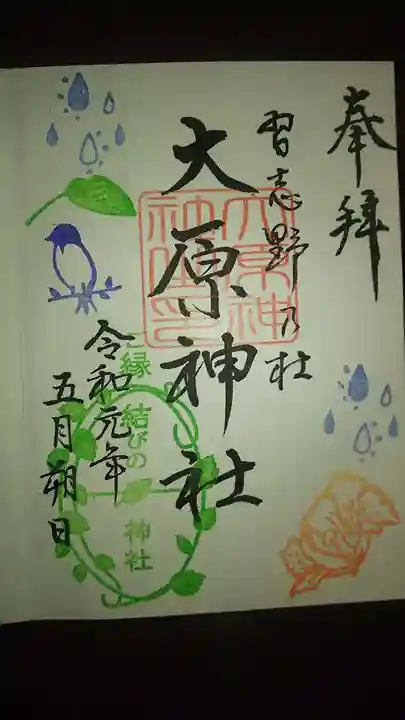 奉拝
習志野乃杜
大原神社
大原神社印
ご縁結びの神社
令和元年
五月朔日